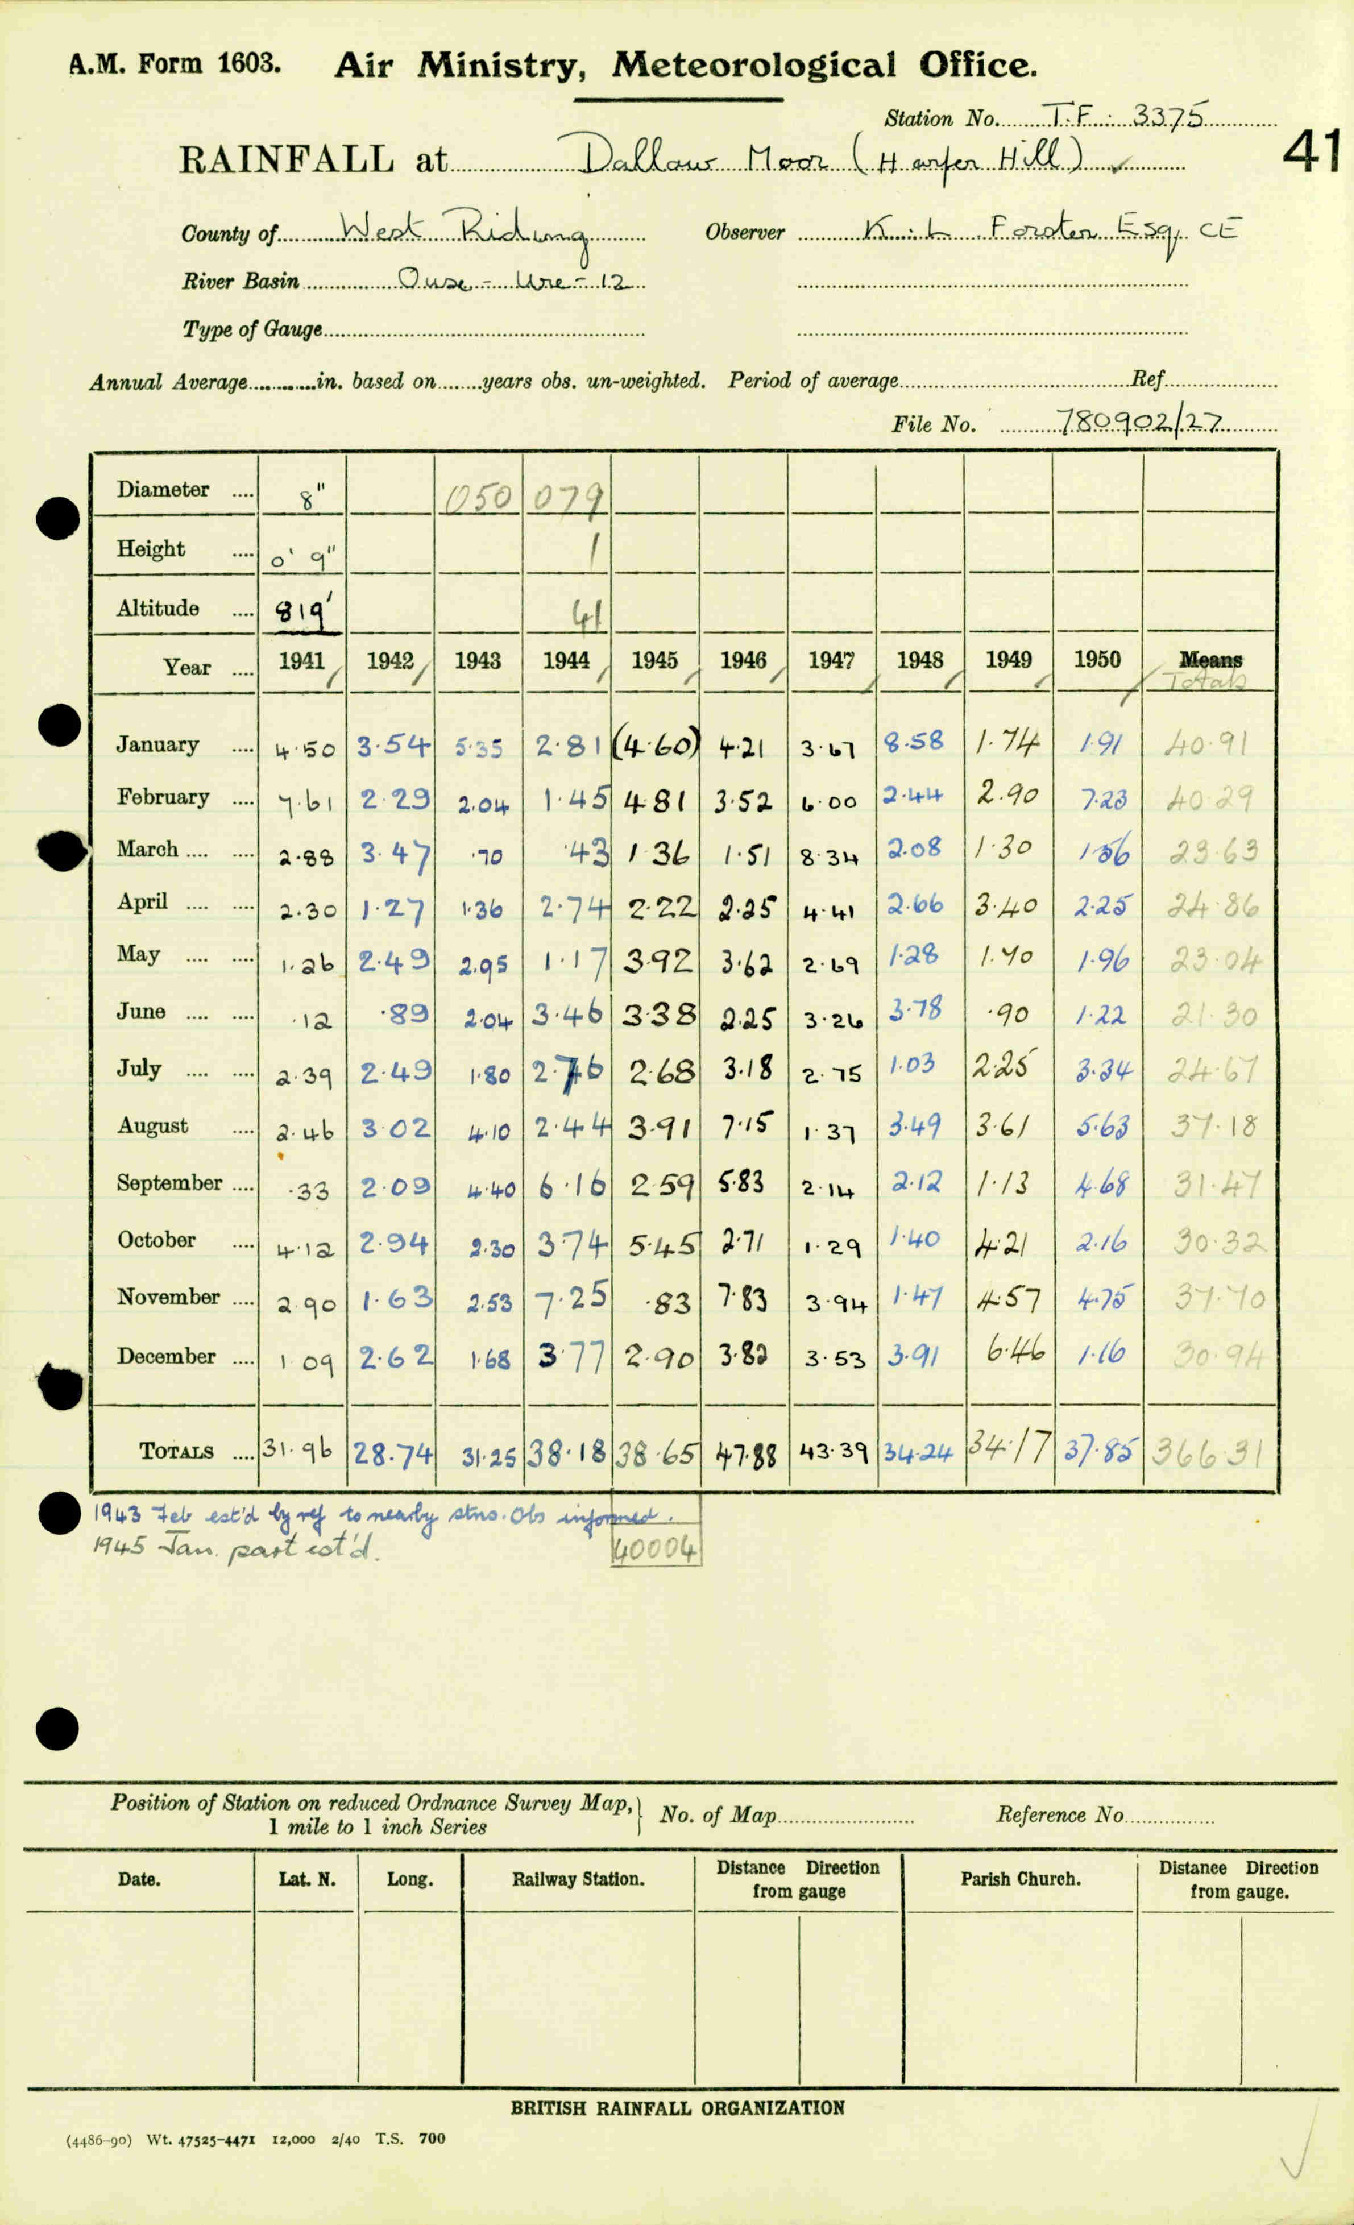 A.M. Form 1603. Air Ministry, Meteorological Office.
Station No. T.F. 3375
41
RAINFALL at Dallow Moor (Harper Hill) ✓
County of West Riding Observer K. L. Forster Esq, CE
River Basin Ouse - Ure - 12
Type of Gauge
Annual Average in. based on years obs. un-weighted. Period of average Ref
File No. 780902/27
Diameter .... 8" 050 079
Height .... 0' 9" 1
Altitude .... 819' 41
Year .... 1941 1942 1943 1944 1945 1946 1947 1948 1949 1950 Means
Totals
January .... 4.50 3.54 5.35 2.81 (4.60) 4.21 3.67 8.58 1.74 1.91 40.91
February .... 7.61 2.29 2.04 1.45 4.81 3.52 6.00 2.44 2.90 7.23 40.29
March .... .... 2.88 3.47 .70 .43 1.36 1.51 8.34 2.08 1.30 1.56 23.63
April .... .... 2.30 1.27 1.36 2.74 2.22 2.25 4.41 2.66 3.40 2.25 24.86
May .... .... 1.26 2.49 2.95 1.17 3.92 3.62 2.69 1.28 1.70 1.96 23.04
June .... .... .12 .89 2.04 3.46 3.38 2.25 3.26 3.78 .90 1.22 21.30
July .... .... 2.39 2.49 1.80 2.76 2.68 3.18 2.75 1.03 2.25 3.34 24.67
August .... 2.46 3.02 4.10 2.44 3.91 7.15 1.37 3.49 3.61 5.63 37.18
September .... .33 2.09 4.40 6.16 2.59 5.83 2.14 2.12 1.13 4.68 31.47
October .... 4.12 2.94 2.30 3.74 5.45 2.71 1.29 1.40 4.21 2.16 30.32
November .... 2.90 1.63 2.53 7.25 .83 7.83 3.94 1.47 4.57 4.75 37.70
December .... 1.09 2.62 1.68 3.77 2.90 3.82 3.53 3.91 6.46 1.16 30.94
TOTALS .... 31.96 28.74 31.25 38.18 38.65 47.88 43.39 34.24 34.17 37.85 366.31
1943 Feb est'd by ref to nearby stns. Obs informed.
1945 Jan. part est'd. 40004
Position of Station on reduced Ordnance Survey Map, } No. of Map Reference No
1 mile to 1 inch Series
Date. Lat. N. Long. Railway Station. Distance Direction from gauge Parish Church. Distance Direction from gauge.
BRITISH RAINFALL ORGANIZATION
(4486-90) Wt. 47525-4471 12,000 2/40 T.S. 700